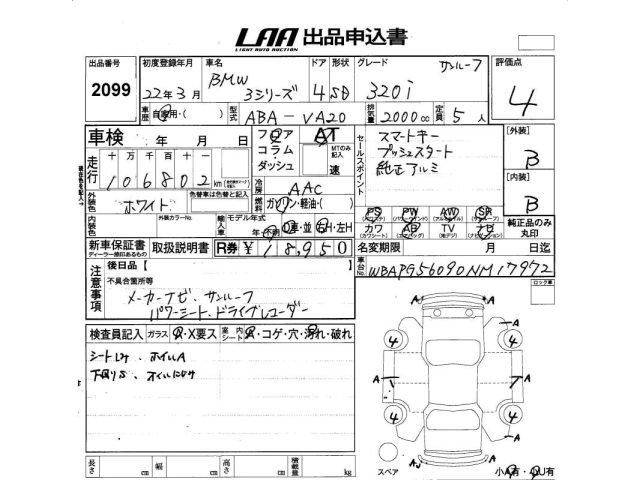 LAA 出品申込書
LIGHT AUTO AUCTION
出品番号 初度登録年月 車名 ドア 形状 グレード サンルーフ 評価点
2099 22年3月 BMW 3シリーズ 4 SD 320i 4
車歴 自家用・( ) 型式 ABA-VA20 排気量 2000cc 定員 5人
車検 年 月 日 フロア コラム ダッシュ AT MTのみ記入 速
セールスポイント スマートキー
プッシュスタート
純正アルミ
[外装] B
[内装] B
走行 十万千百十一
106802 km
冷房 AAC
燃料 ガソリン・軽油・( )
外装色 ホワイト 色替車は色替と記入
内装色 外装カラーNo. 輸入車 モデル年式 年 右H・左H
PS PW AW SR
カワ TV ナビ
純正品のみ丸印
新車保証書 取扱説明書 R券 ¥18,950
ディーラー捺印あるもの
名変期限 月 日迄
車台No. WBAPG56090NM17972
ロック車
注意事項 後日品【
不具合箇所等
メーカーナビ、サンルーフ
パワーシート、ドライブレコーダー
検査員記入 ガラス A・X要ス 室内 シート A・コゲ・穴・汚れ・破れ
シートLみ、ホイルA
下回りS、オイルにじみ
A A
4 4
A 1 1 A
4 4
A A
スペア 小A有・小U有
長さ cm 幅 cm 高さ cm 積載量 kg